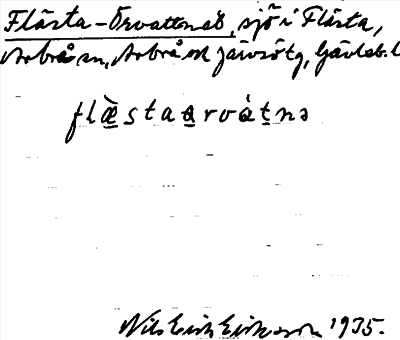 Flästa-Örvattnet, sjö i Flästa,
Arbrå sn, Arbrå ok Järvsö tg, Gävleb. l
flæ̀staarvátnə
Nils Erik Eriksson 1935.